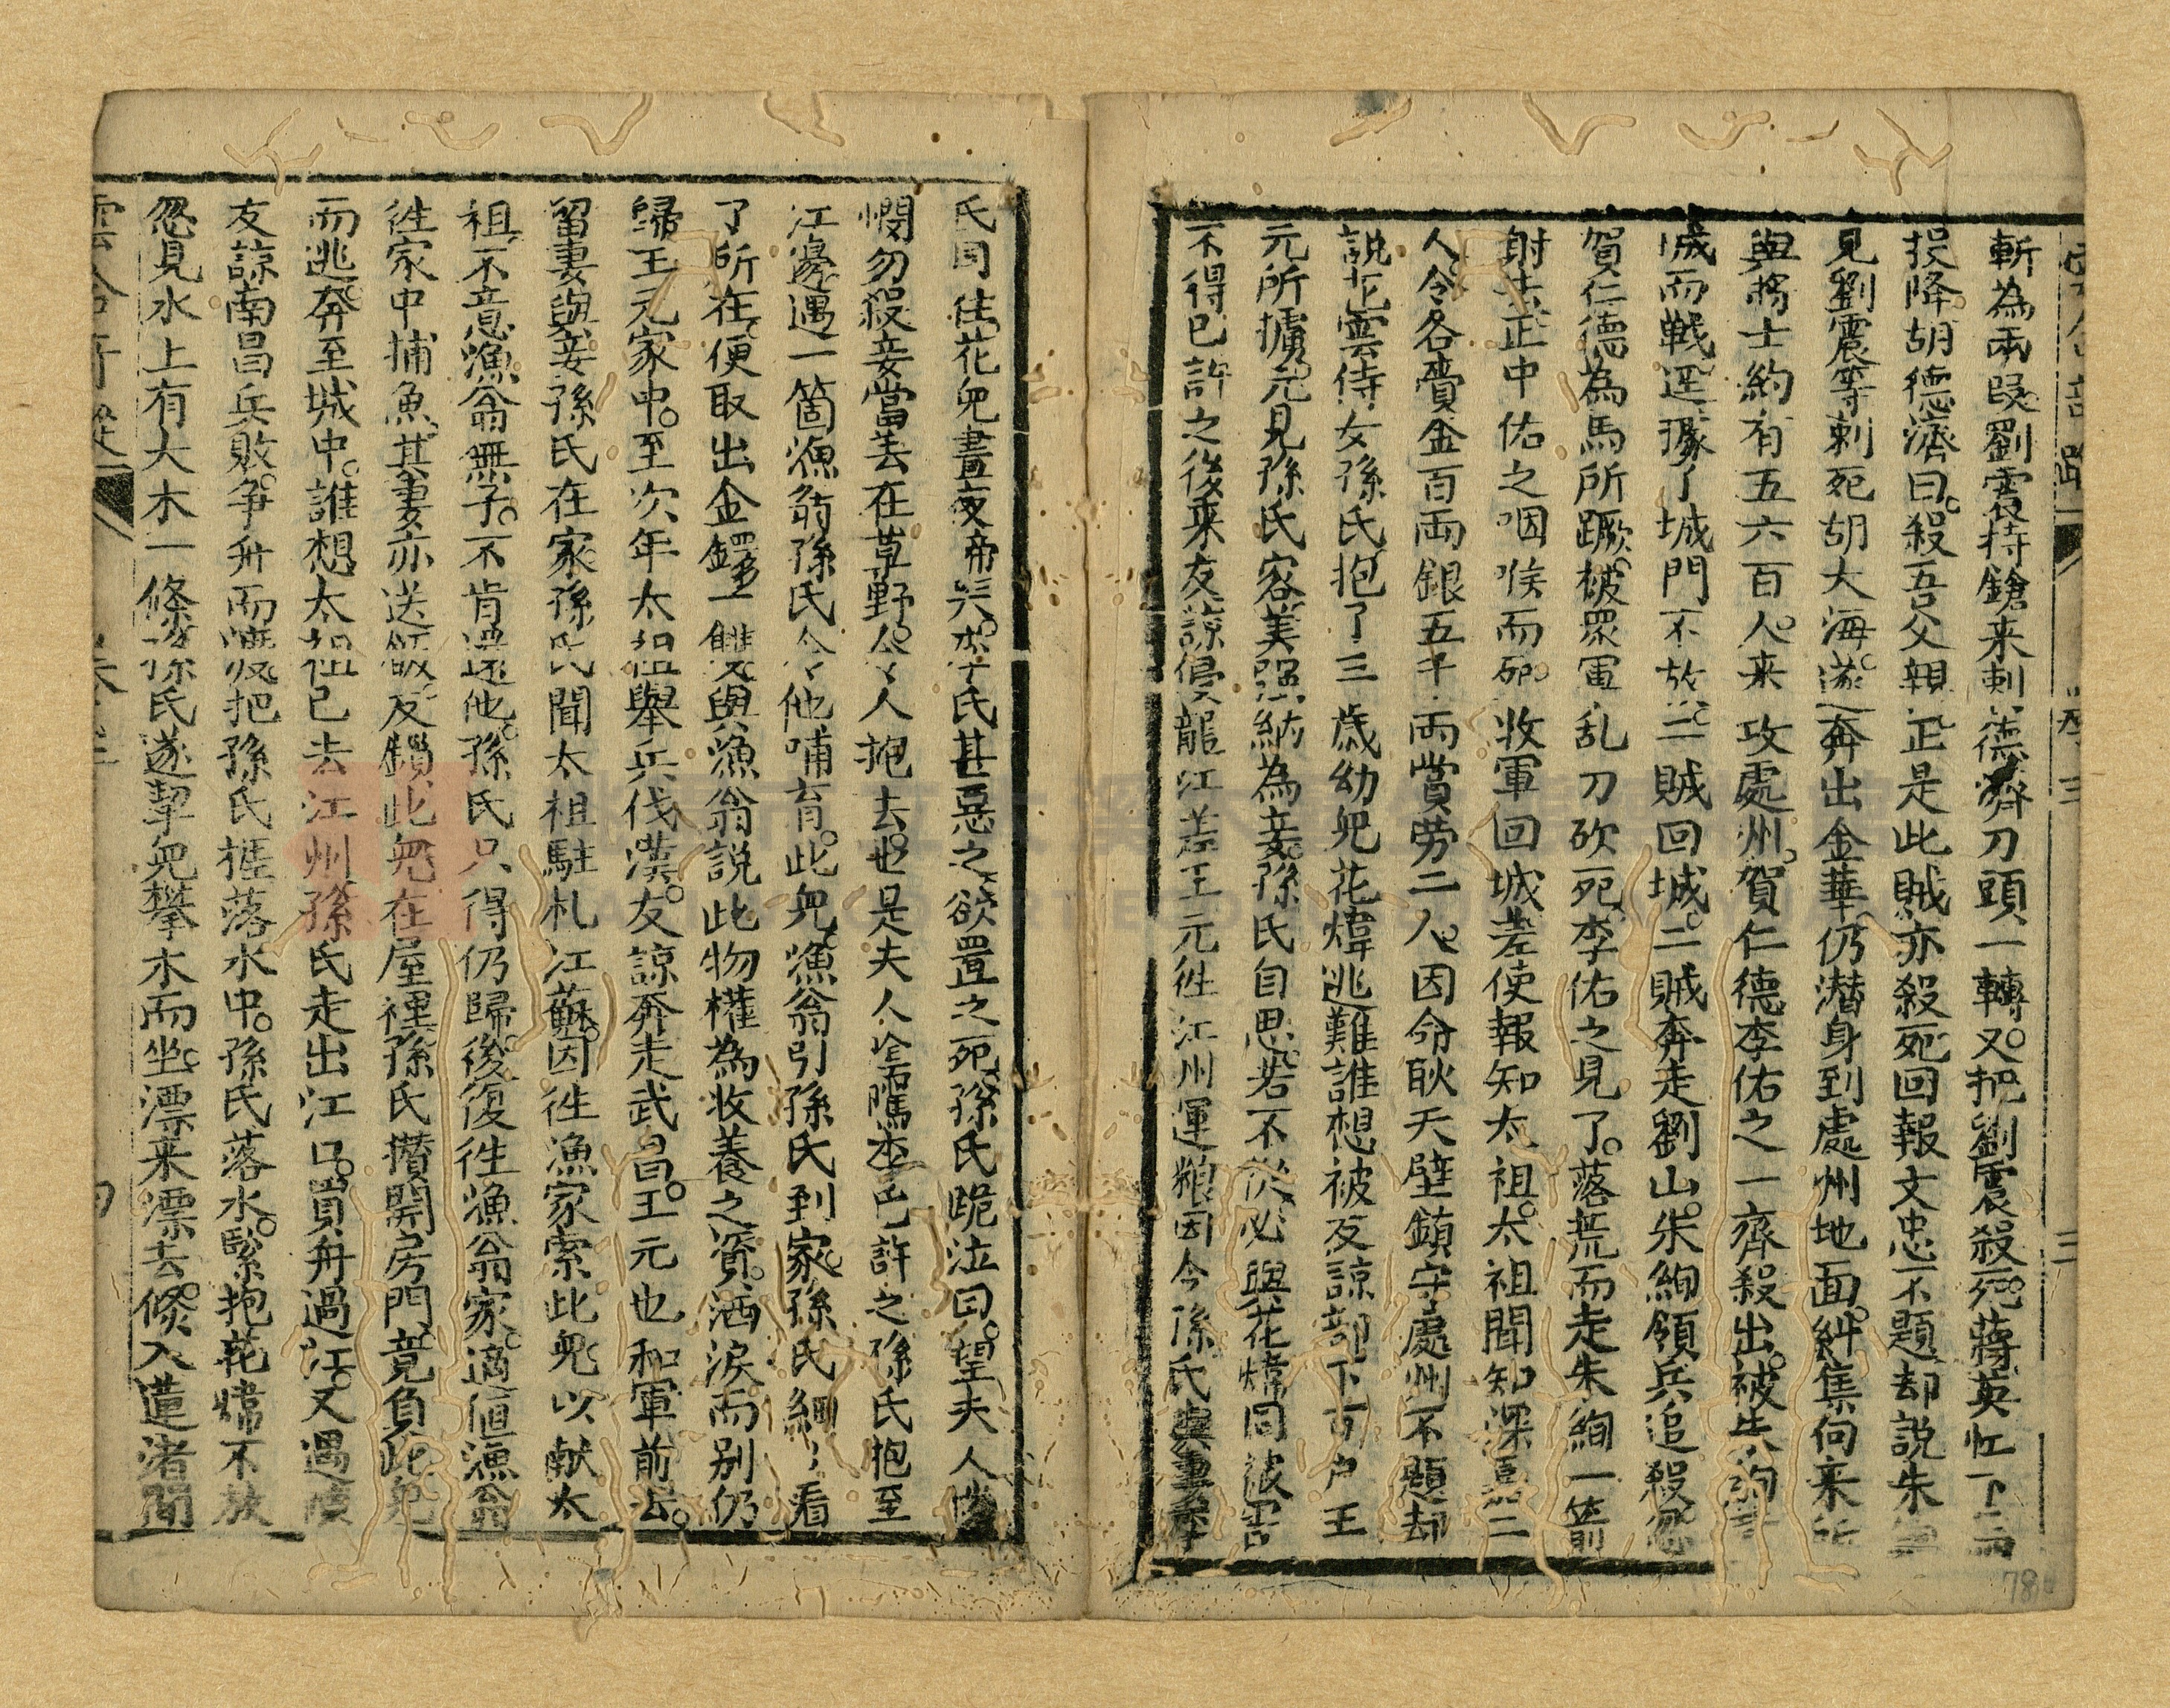 斬為兩段劉震持鎗来刺德濟刀頭一轉又把劉震殺死蔣英忙下
投降胡德濟曰殺吾父親正是此賊亦殺死回報文忠不題却説朱
見劉震等刺死胡大海遂奔出金華仍潜身到處州地面糾集何来
與將士約有五六百人来攻處州賀仁德李佑之一齊殺出被朱絢
城而戰逕據了城門不放二賊回城二賊奔走劉山朱絢領兵追殺
賀仁德為馬所蹶被眾軍乱刀砍死李佑之見了落荒而走朱絢一箭
射去正中佑之咽喉而死收軍回城差使報知太祖太祖聞知深喜二
人令各賫金百両銀五千両賞勞二人因命耿天璧鎮守處州不題却
說花雲侍女孫氏抱了三歲幼兒花煒逃難誰想被友諒部下百户王
元所擄元見孫氏容美强納為妾孫氏自思若不從必與花煒同被害
不得已許之後来友諒侵龍江差王元徃江州運粮因令孫氏與妻李
氏同住花兒晝夜啼哭李氏甚惡之欲置之死孫氏跪泣曰望夫人憐
憫勿殺妾當丢在草野令人抱去也是夫人隂隲李氏許之孫氏抱至
江邊遇一箇漁翁孫氏令他哺育此兒漁翁引孫氏到家孫氏細〻看
了所在便取出金鐲一雙與漁翁説此物權為收養之資洒淚而别仍
歸王元家中至次年太祖舉兵伐漢友諒奔走武昌王元也和軍前去
留妻與妾孫氏在家孫氏聞太祖駐札江蘇因徃漁家索此兒以献太
祖不意漁翁無子不肯還他孫氏只得仍歸後復徃漁翁家適值漁翁
徃家中捕魚其妻亦送飯反鎖此兒在屋裡孫氏攢開房門竟負此兒
而逃奔至城中誰想太祖已去江州孫氏走出江口買舟過江又遇
友諒南昌兵敗争舟而渡把孫氏推落水中孫氏落水緊抱花煒不放
忽見水上有大木一條孫氏遂挈兒攀木而坐漂来漂去倐入蓮渚間